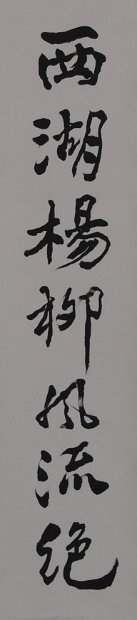 西湖楊柳風流絶